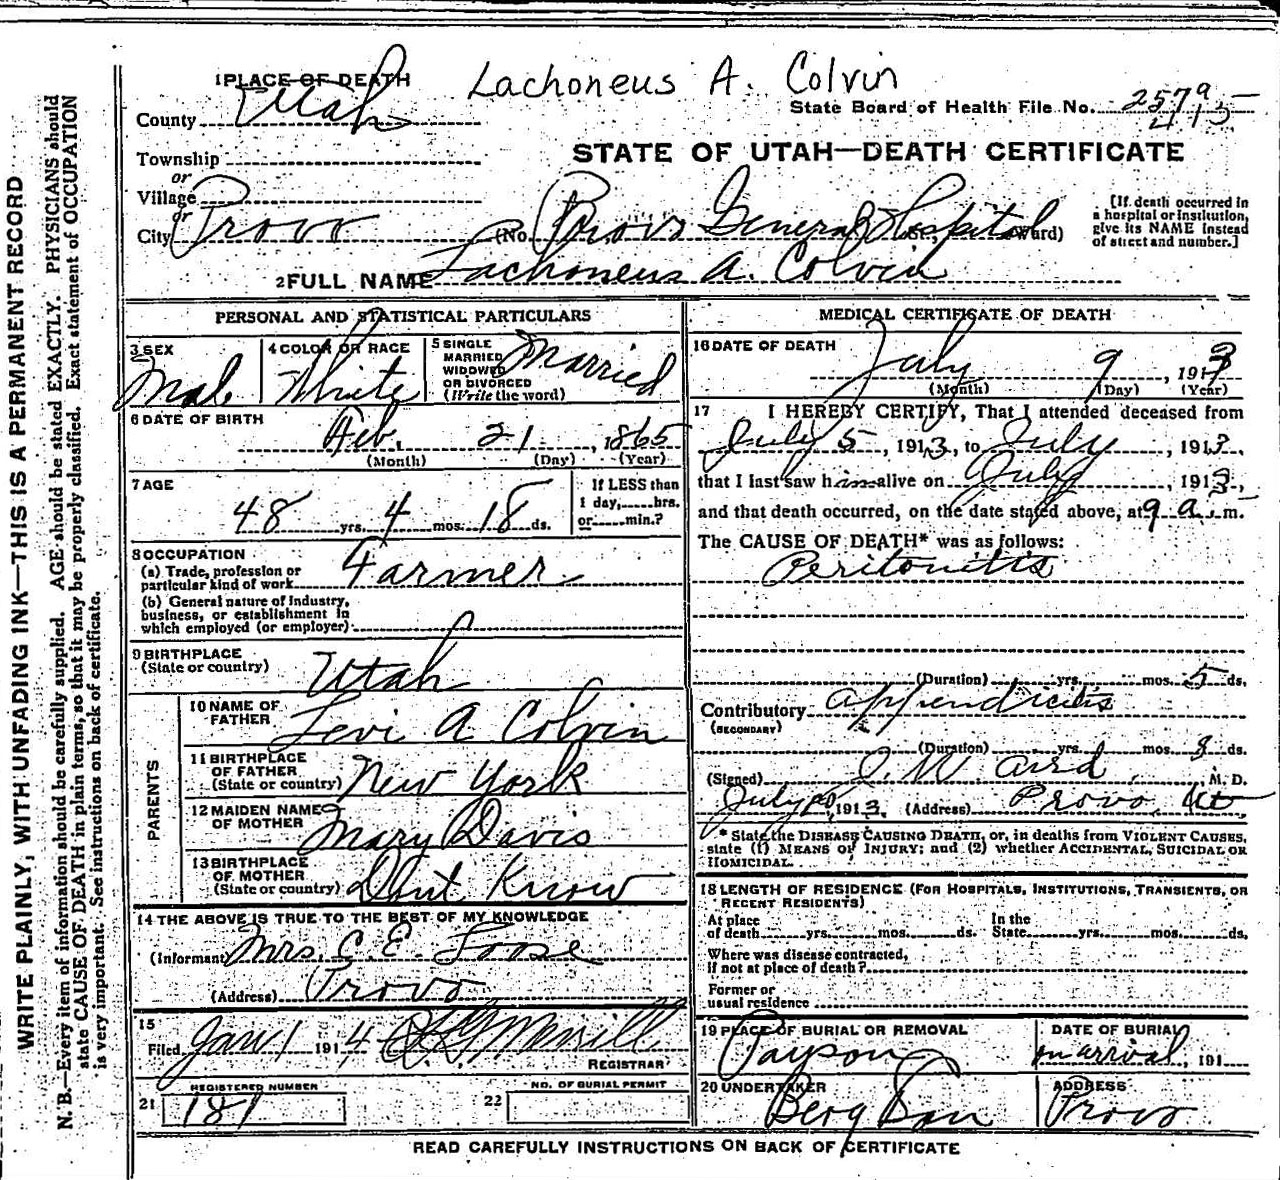 Lachoneus A. Colvin
1 PLACE OF DEATH
State Board of Health File No. 2579
415
County Utah
STATE OF UTAH—DEATH CERTIFICATE
Township
or
Village
or
City Provo (No. Provo General Hospital St., Ward)
[If death occurred in
a hospital or institution,
give its NAME instead
of street and number.]
2 FULL NAME Lachoneus A. Colvin
PERSONAL AND STATISTICAL PARTICULARS
3 SEX
Male
4 COLOR OR RACE
White
5 SINGLE
MARRIED
WIDOWED
OR DIVORCED
(Write the word)
Married
6 DATE OF BIRTH
Feb. 21, 1865
(Month) (Day) (Year)
7 AGE
48 yrs. 4 mos. 18 ds.
If LESS than
1 day,.....hrs.
or.....min.?
8 OCCUPATION
(a) Trade, profession or
particular kind of work Farmer
(b) General nature of industry,
business, or establishment in
which employed (or employer)
9 BIRTHPLACE
(State or country) Utah
PARENTS
10 NAME OF
FATHER Levi A Colvin
11 BIRTHPLACE
OF FATHER
(State or country) New York
12 MAIDEN NAME
OF MOTHER Mary Davis
13 BIRTHPLACE
OF MOTHER
(State or country) Dont Know
14 THE ABOVE IS TRUE TO THE BEST OF MY KNOWLEDGE
(Informant) Mrs. C. E. Loose
(Address) Provo
15
Filed Jan 1 1914 Merrill
REGISTRAR
REGISTERED NUMBER
21 181
NO. OF BURIAL PERMIT
22
MEDICAL CERTIFICATE OF DEATH
16 DATE OF DEATH
July 9, 1913
(Month) (Day) (Year)
17 I HEREBY CERTIFY, That I attended deceased from
July 5, 1913, to July, 1913,
that I last saw him alive on July, 1913,
and that death occurred, on the date stated above, at 9 a.m.
The CAUSE OF DEATH* was as follows:
Peritonitis
(Duration) yrs. mos. 5 ds.
Contributory appendicitis
(SECONDARY)
(Duration) yrs. mos. 8 ds.
(Signed) M. D.
July 1913. (Address) Provo Ut
* State the DISEASE CAUSING DEATH, or, in deaths from VIOLENT CAUSES,
state (1) MEANS OF INJURY; and (2) whether ACCIDENTAL, SUICIDAL OR
HOMICIDAL.
18 LENGTH OF RESIDENCE (FOR HOSPITALS, INSTITUTIONS, TRANSIENTS, OR
RECENT RESIDENTS)
At place
of death yrs. mos. ds.
In the
State yrs. mos. ds.
Where was disease contracted,
if not at place of death?
Former or
usual residence
19 PLACE OF BURIAL OR REMOVAL
Payson
DATE OF BURIAL
on arrival, 191
20 UNDERTAKER
Berg
ADDRESS
Provo
READ CAREFULLY INSTRUCTIONS ON BACK OF CERTIFICATE
WRITE PLAINLY, WITH UNFADING INK—THIS IS A PERMANENT RECORD
N. B.—Every item of information should be carefully supplied. AGE should be stated EXACTLY. PHYSICIANS should
state CAUSE OF DEATH in plain terms, so that it may be properly classified. Exact statement of OCCUPATION
is very important. See instructions on back of certificate.